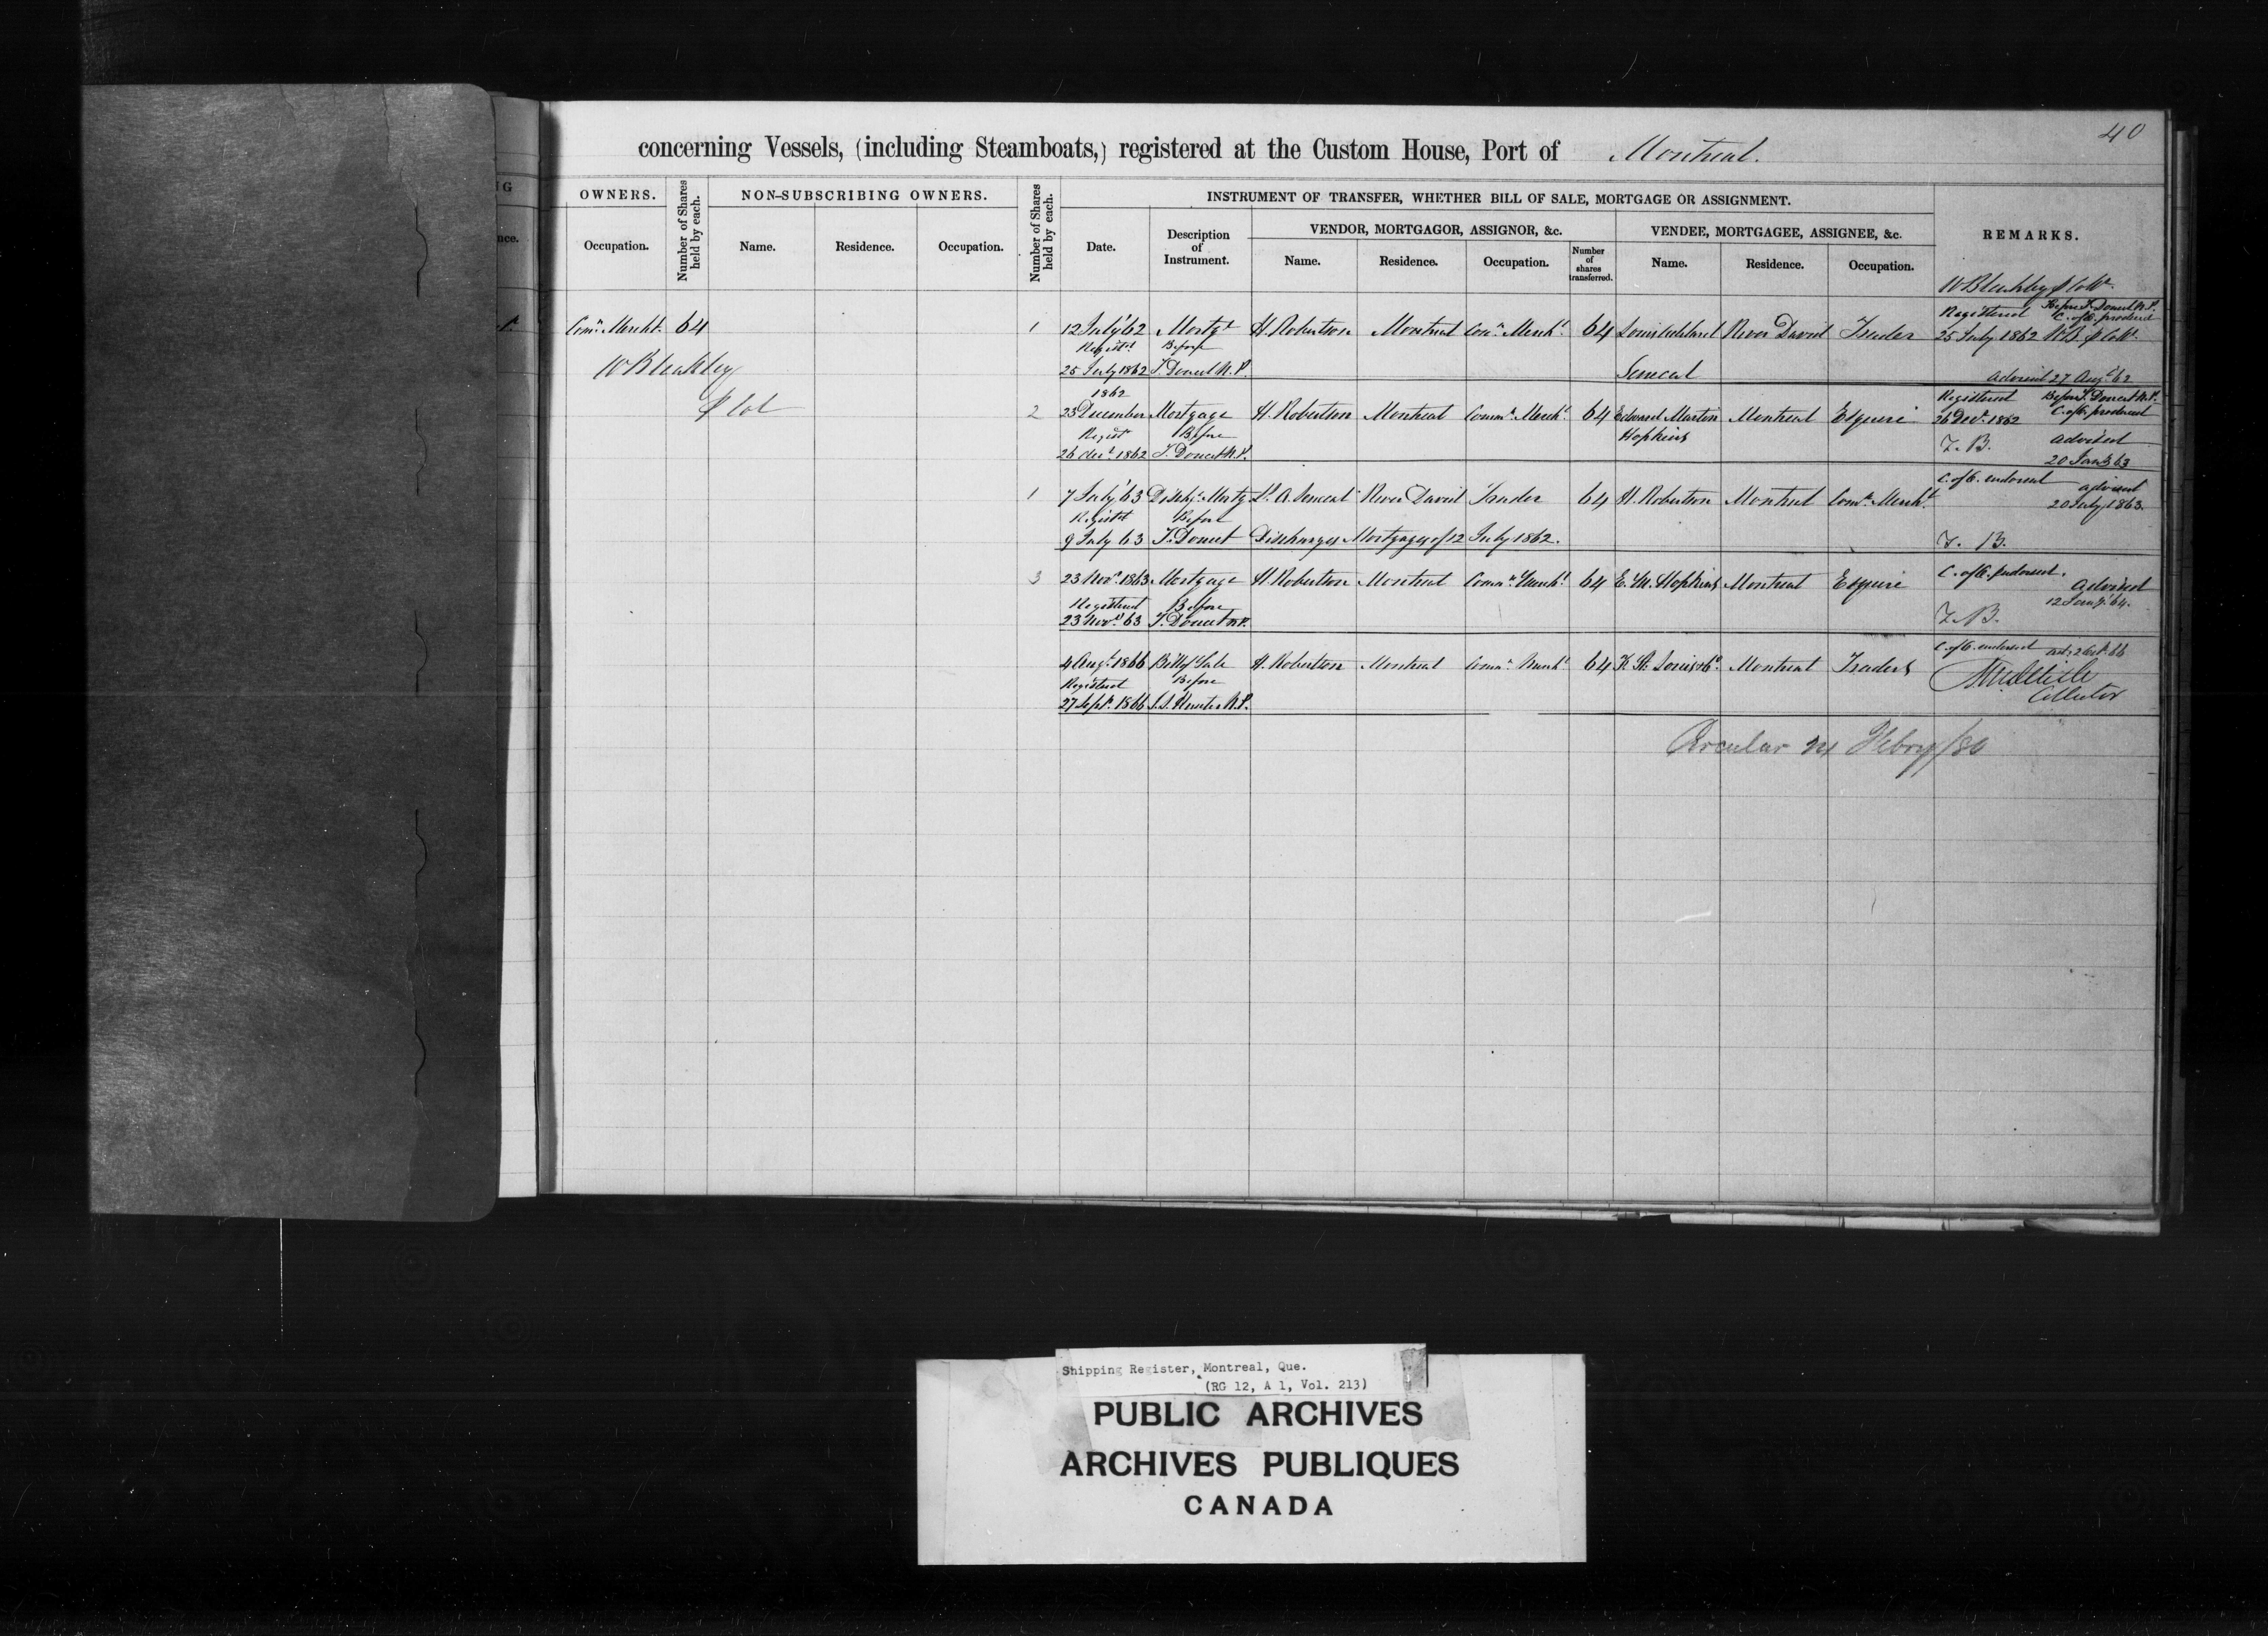 40
concerning Vessels, (including Steamboats,) registered at the Custom House, Port of Montreal.
OWNERS.
Occupation.
Number of Shares held by each.
NON-SUBSCRIBING OWNERS.
Name. Residence. Occupation.
Number of Shares held by each.
INSTRUMENT OF TRANSFER, WHETHER BILL OF SALE, MORTGAGE OR ASSIGNMENT.
Date.
Description of Instrument.
VENDOR, MORTGAGOR, ASSIGNOR, &c.
Name. Residence. Occupation.
Number of shares transferred.
VENDEE, MORTGAGEE, ASSIGNEE, &c.
Name. Residence. Occupation.
REMARKS.
W Bleakley
Registered Before T. Doucet N.P.
C. of O. produced
Comn Mercht. 64 1 12 July '62 Mortgt H. Robertson Montreal Comn Mercht. 64 River David Trader 25 July 1862 W.B.
Registd Before
W Bleakley
25 July 1862 T. Doucet N.P. Senecal advised 27 Augt 62
1862
2 23 December Mortgage H. Robertson Montreal Commn Mercht 64 Edward Martin Montreal Esquire
Hopkins
Registered Before T. Doucet N.P.
26 Decr. 1862 C. of O. produced
Regist Before
26 decr 1862 T. Doucet N.P. T. B. advised
20 Jany 63
1 7 July '63 Dischge Mortg Ls. A. Senecal River David Trader 64 H. Robertson Montreal Comn. Mercht
C. of O. endorsed advised
20 July 1863.
Registd Before
9 July 63 T. Doucet Discharges Mortgage of 12 July 1862. T. B.
3 23 Novr. 1863 Mortgage H. Robertson Montreal Commn Mercht 64 E. M. Hopkins Montreal Esquire
C. of O. endorsed. Advised
12 Jany. 64.
Registered Before
23 Novr 63 T. Doucet N.P. T. B.
4 Augt. 1866 Bill of Sale H. Robertson Montreal Commn Mercht 64 St. Louis & Co. Montreal Traders
C. of O. endorsed
Registered Before
27 Sept. 1866 J.S. Hunter N.P. Collector
Circular 24 Febry/80
Shipping Register, Montreal, Que.
(RG 12, A 1, Vol. 213)
PUBLIC ARCHIVES
ARCHIVES PUBLIQUES
CANADA